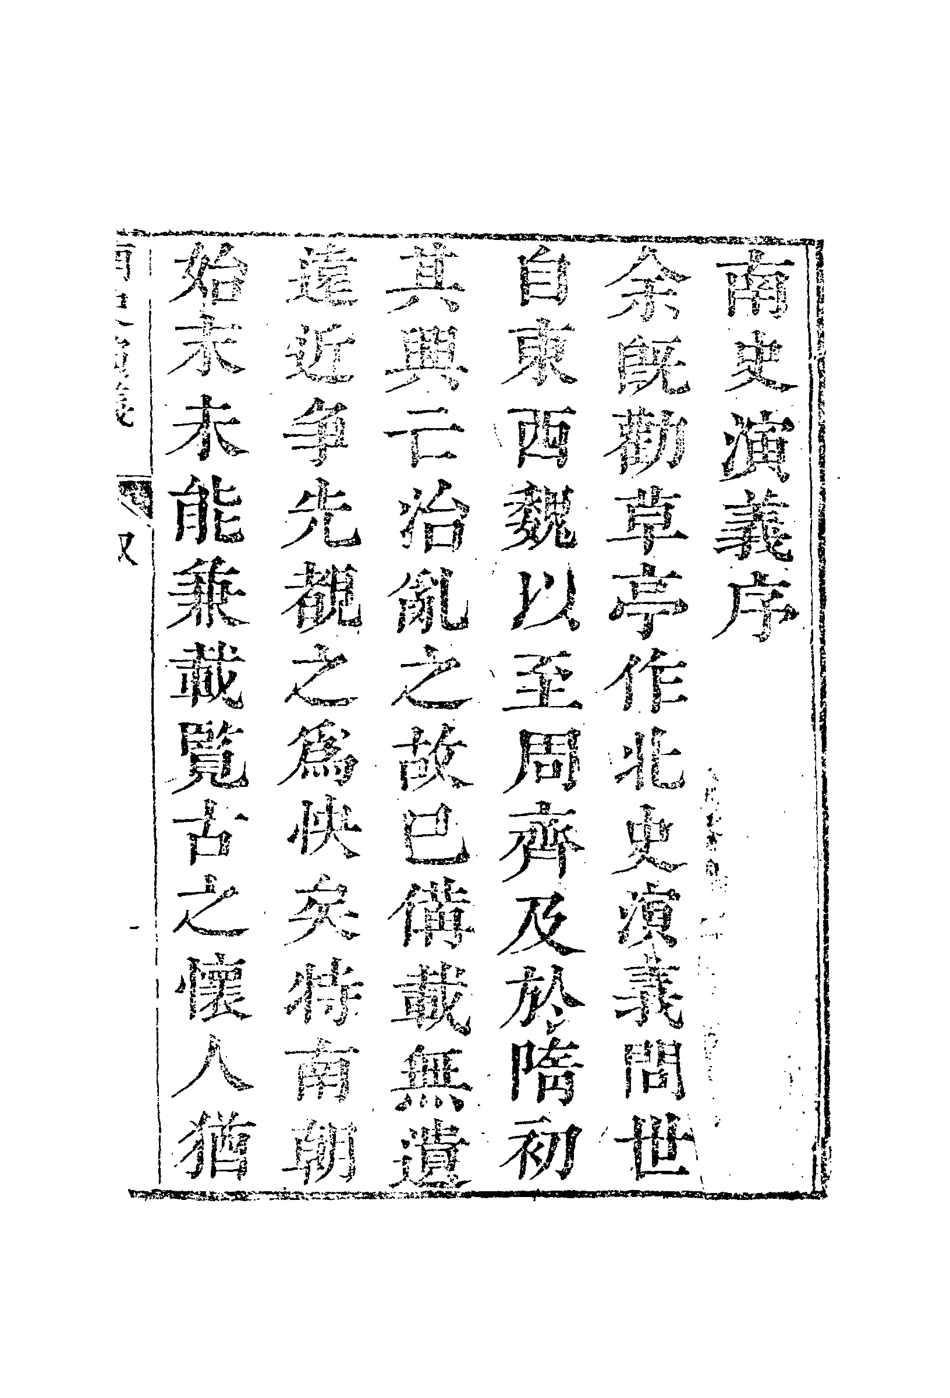 南史演義序
余旣勸草亭作北史演義問世
自東西魏以至周齊及於隋初
其興亡治亂之故已備載無遺
遠近争先覩之爲快矣特南朝
始末未能兼載覽古之懷人猶
南史演義
叙